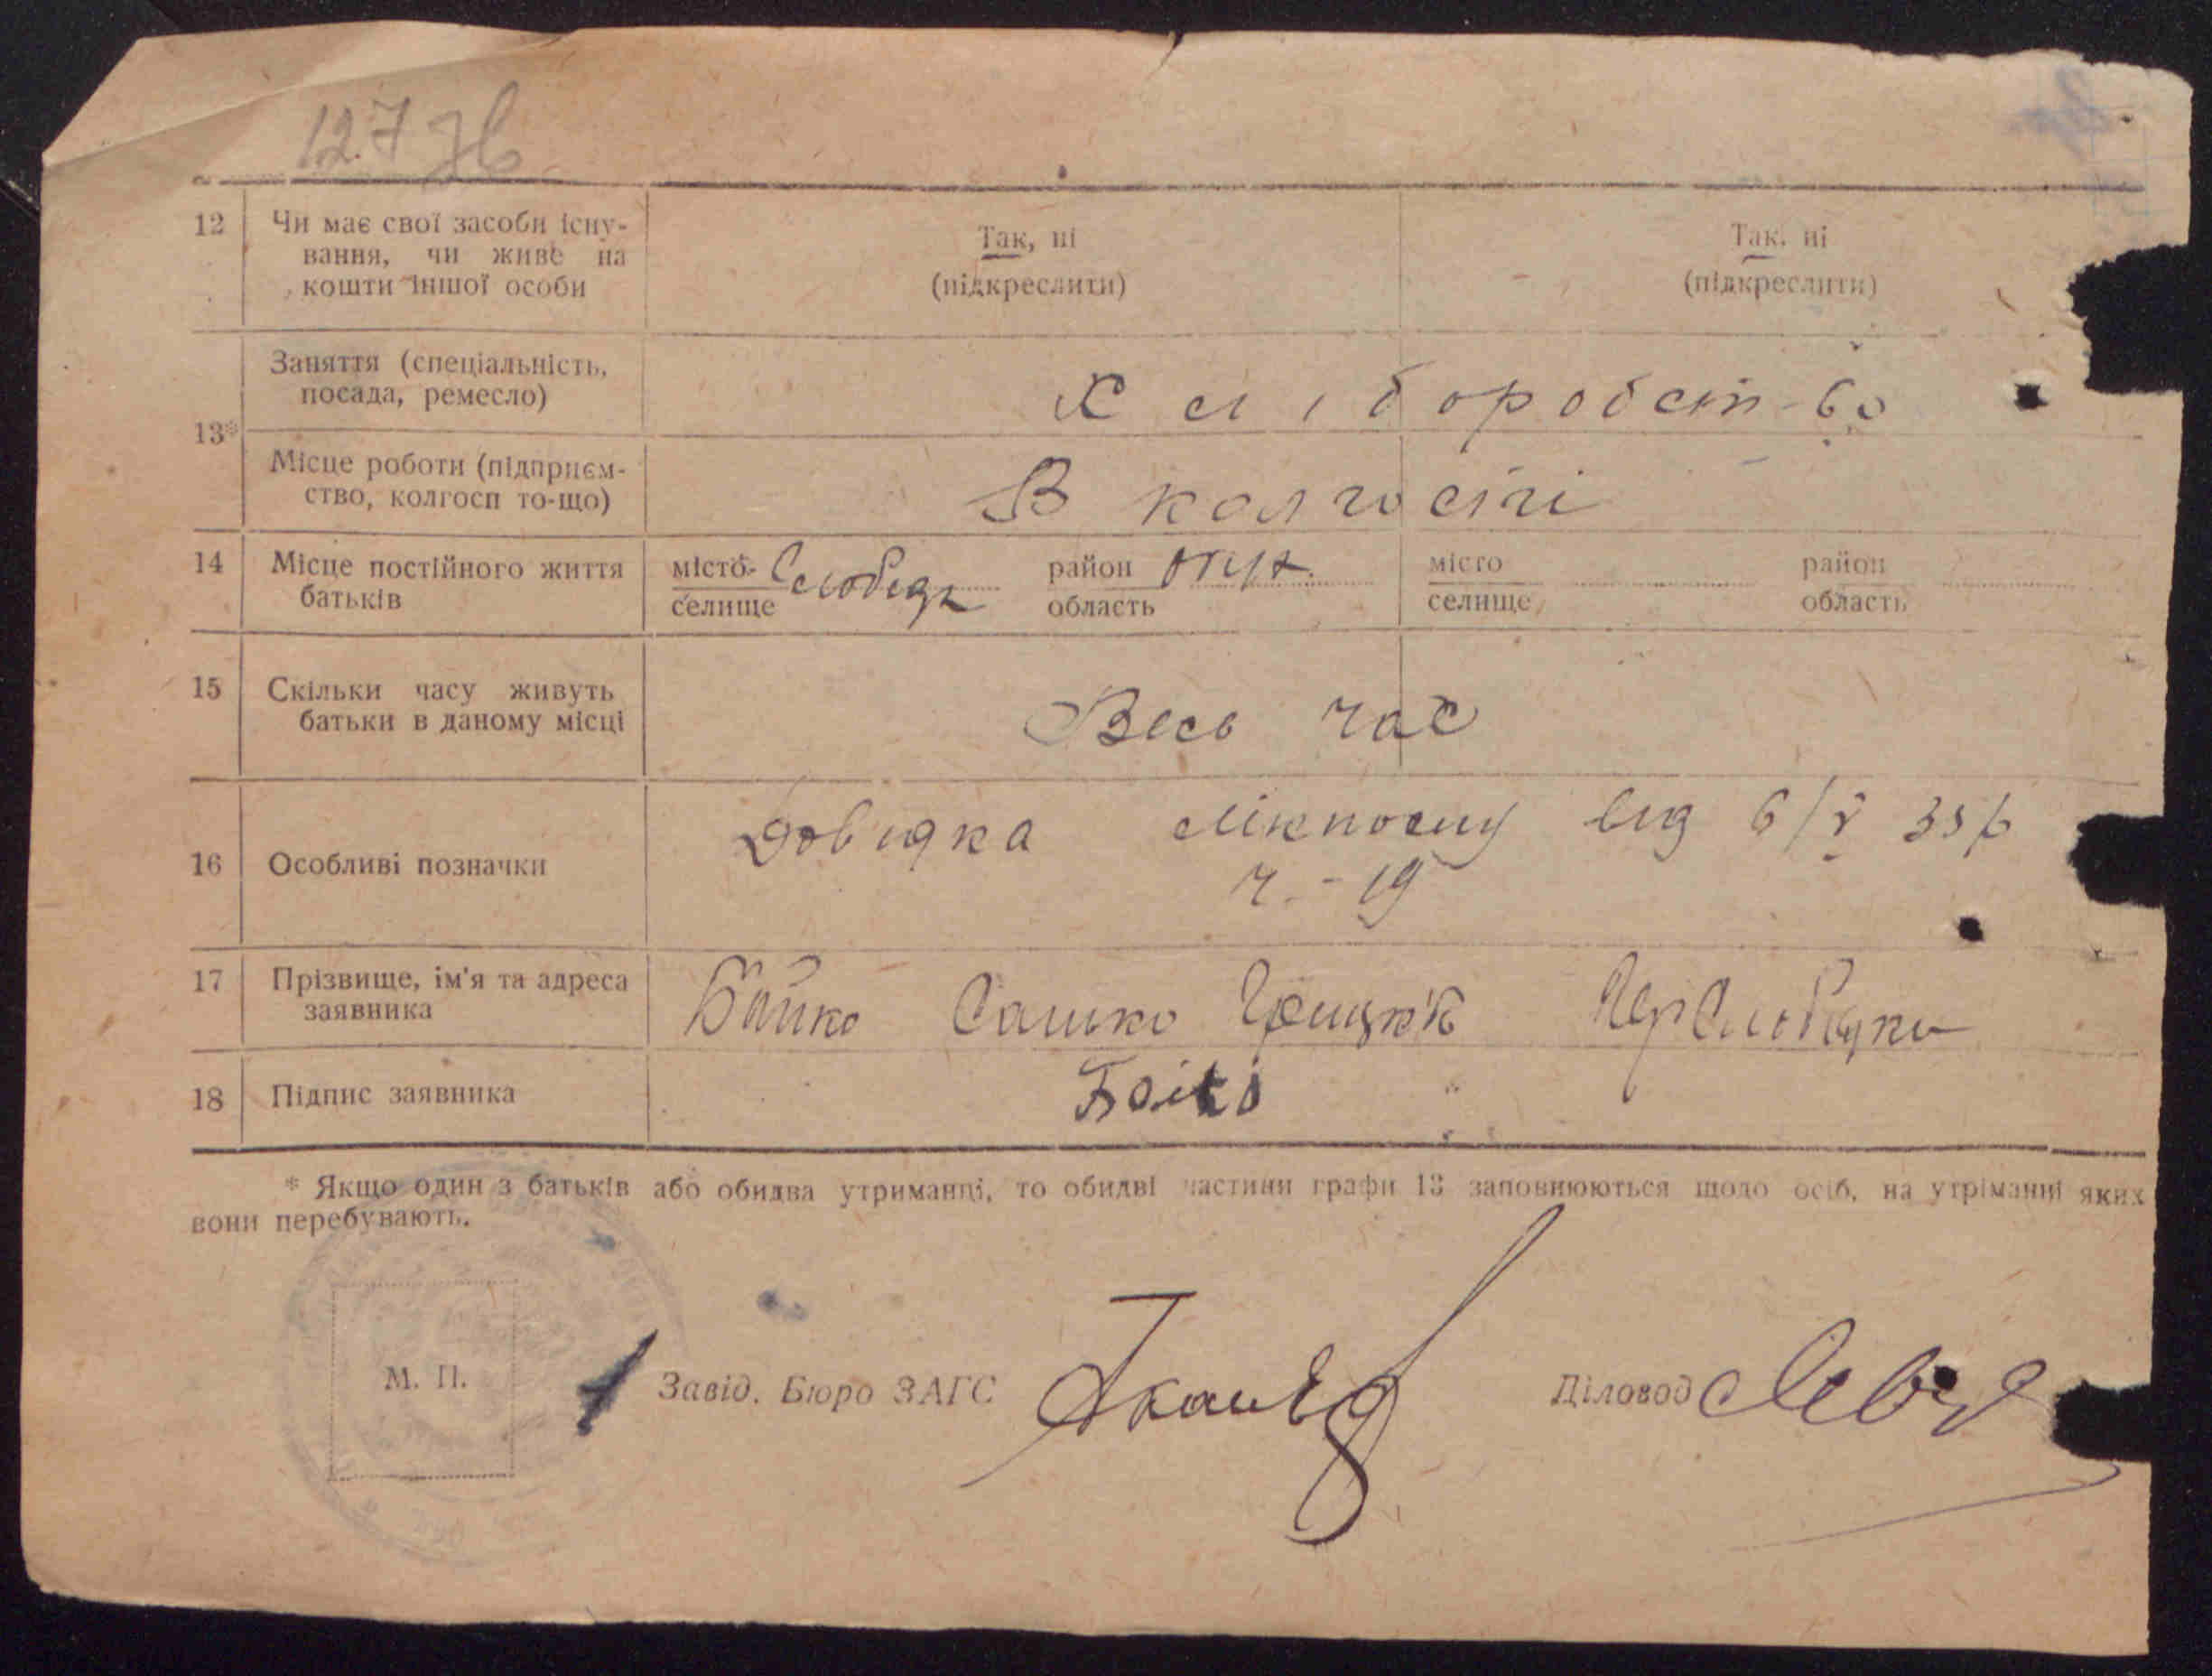 127
12 Чи має свої засоби існу-
вання, чи живе на
кошти іншої особи
Так, ні
(підкреслити)
Так, ні
(підкреслити)
13*
Заняття (спеціальність,
посада, ремесло)
Хліборобст-во
Місце роботи (підприєм-
ство, колгосп то-що)
В колгоспі
14 Місце постійного життя
батьків
місто
селище
район
область
місто
селище
район
область
15 Скільки часу живуть
батьки в даному місці
Весь час
16 Особливі позначки
Довидка від 6/V
ч. - 19
17 Прізвище, ім'я та адреса
заявника
Бойко Сашко
18 Підпис заявника
Бойко
* Якщо один з батьків або обидва утриманці, то обидві частини графи 13 заповнюються щодо осіб, на утріманні яких
вони перебувають.
М. П.
Завід. Бюро ЗАГС
Діловод